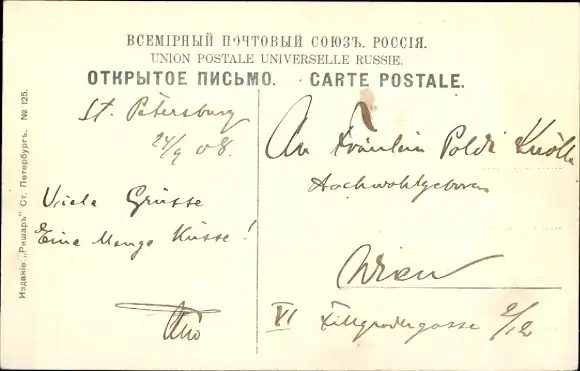 ВСЕМІРНЫЙ ПОЧТОВЫЙ СОЮЗЪ. РОССІЯ.
UNION POSTALE UNIVERSELLE RUSSIE.
ОТКРЫТОЕ ПИСЬМО. — CARTE POSTALE.
St. Petersburg
24/9 08.
Viele Grüsse
Eine Menge Küsse!
An Fräulein Poldi
Hochwohlgeboren
Wien
VI Fillgradergasse 2/12
Изданіе „Ришаръ" Ст. Петербургъ. № 125.